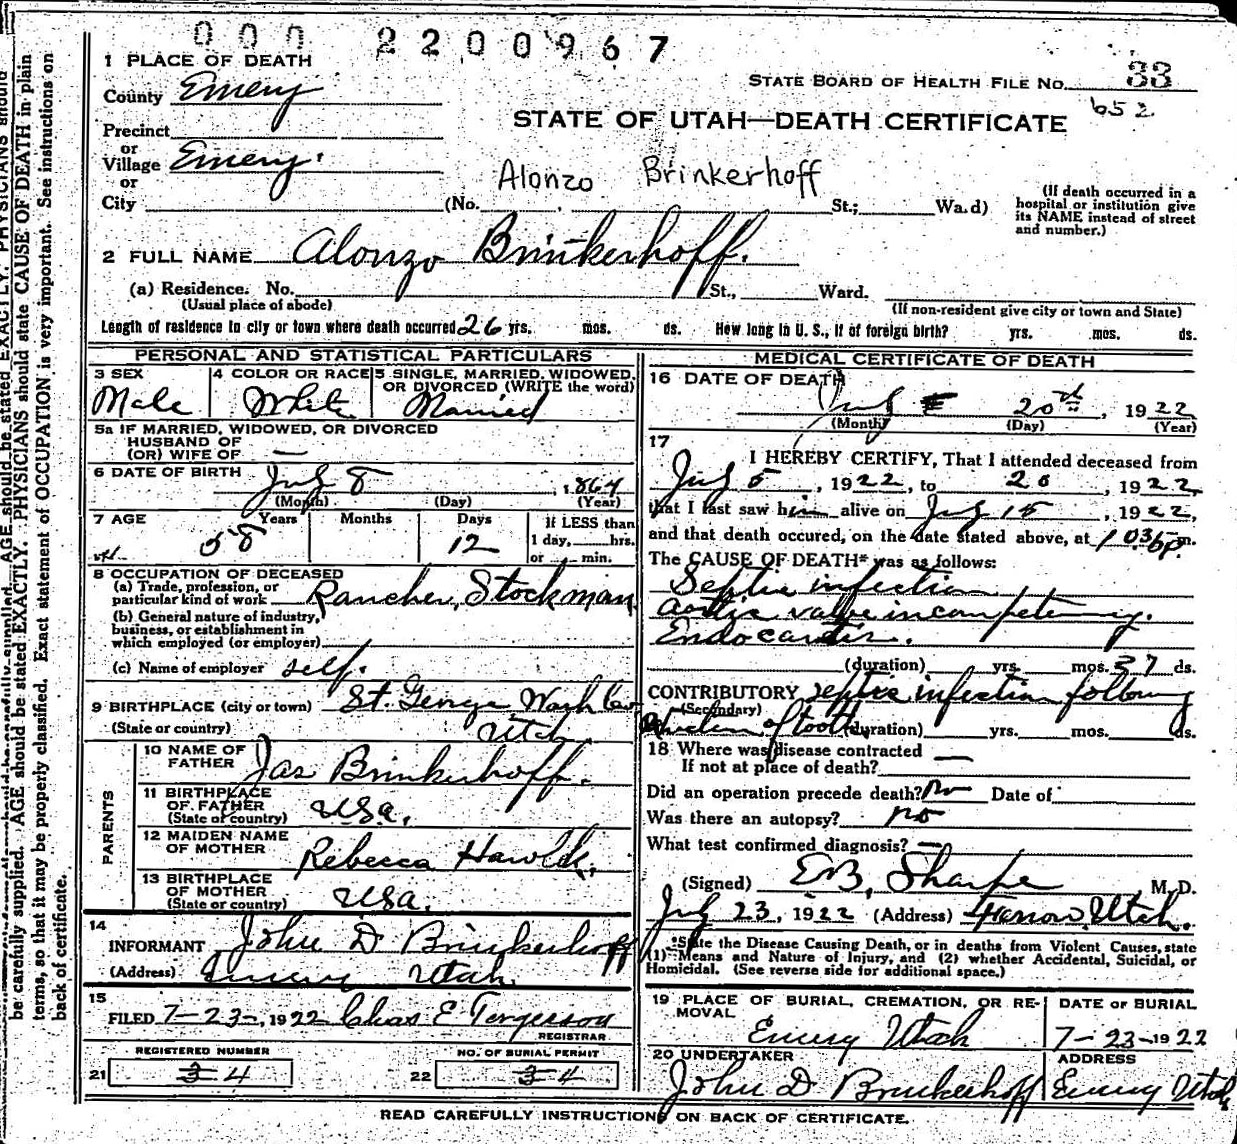 000 2200967
1 PLACE OF DEATH
County Emery
STATE BOARD OF HEALTH FILE No. 33
652
STATE OF UTAH—DEATH CERTIFICATE
Precinct
or
Village Emery.
or
City
Alonzo Brinkerhoff
(No. , St.; Wa.d)
(If death occurred in a
hospital or institution give
its NAME instead of street
and number.)
2 FULL NAME Alonzo Brinkerhoff.
(a) Residence. No. St., Ward.
(Usual place of abode)
(If non-resident give city or town and State)
Length of residence in city or town where death occurred 26 yrs. mos. ds. How long in U. S., if of foreign birth? yrs. mos. ds.
PERSONAL AND STATISTICAL PARTICULARS
3 SEX
Male
4 COLOR OR RACE
White
5 SINGLE, MARRIED, WIDOWED,
OR DIVORCED (WRITE the word)
Married
5a IF MARRIED, WIDOWED, OR DIVORCED
HUSBAND OF
(OR) WIFE OF —
6 DATE OF BIRTH July 8, 1864
(Month) (Day) (Year)
7 AGE Years Months Days
58 12
If LESS than
1 day, hrs.
or min.
8 OCCUPATION OF DECEASED
(a) Trade, profession, or
particular kind of work Rancher, Stockman
(b) General nature of industry,
business, or establishment in
which employed (or employer)
(c) Name of employer self.
9 BIRTHPLACE (city or town) St. George Wash Co
(State or country) Utah
PARENTS
10 NAME OF
FATHER Jas Brinkerhoff.
11 BIRTHPLACE
OF FATHER
(State or country) USA.
12 MAIDEN NAME
OF MOTHER Rebecca
13 BIRTHPLACE
OF MOTHER
(State or country) USA.
14
INFORMANT John D Brinkerhoff
(Address) Emery Utah.
15
FILED 7-23-, 1922 Chas E
REGISTRAR
REGISTERED NUMBER
21 34
NO. OF BURIAL PERMIT
22 34
MEDICAL CERTIFICATE OF DEATH
16 DATE OF DEATH
July 20th, 1922
(Month) (Day) (Year)
17
I HEREBY CERTIFY, That I attended deceased from
July 5, 1922, to 20, 1922,
that I last saw him alive on July 15, 1922,
and that death occured, on the date stated above, at m.
The CAUSE OF DEATH* was as follows:
Septic infection
aortic valve incompetency.
Endocardits.
(duration) yrs. mos. 37 ds.
CONTRIBUTORY septic infection following
(Secondary)
of tooth (duration) yrs. mos. ds.
18 Where was disease contracted
If not at place of death? —
Did an operation precede death? no Date of
Was there an autopsy? no
What test confirmed diagnosis? —
(Signed) Sharpe, M.D.
July 23, 1922 (Address) Ferron, Utah.
*State the Disease Causing Death, or in deaths from Violent Causes, state
(1) Means and Nature of Injury, and (2) whether Accidental, Suicidal, or
Homicidal. (See reverse side for additional space.)
19 PLACE OF BURIAL, CREMATION, OR RE-
MOVAL
Emery Utah
DATE OF BURIAL
7-23-1922
20 UNDERTAKER
John D Brinkerhoff
ADDRESS
Emery Utah
READ CAREFULLY INSTRUCTIONS ON BACK OF CERTIFICATE.
be carefully supplied. AGE should be stated EXACTLY. PHYSICIANS should state CAUSE OF DEATH in plain
terms, so that it may be properly classified. Exact statement of OCCUPATION is very important. See instructions on
back of certificate.